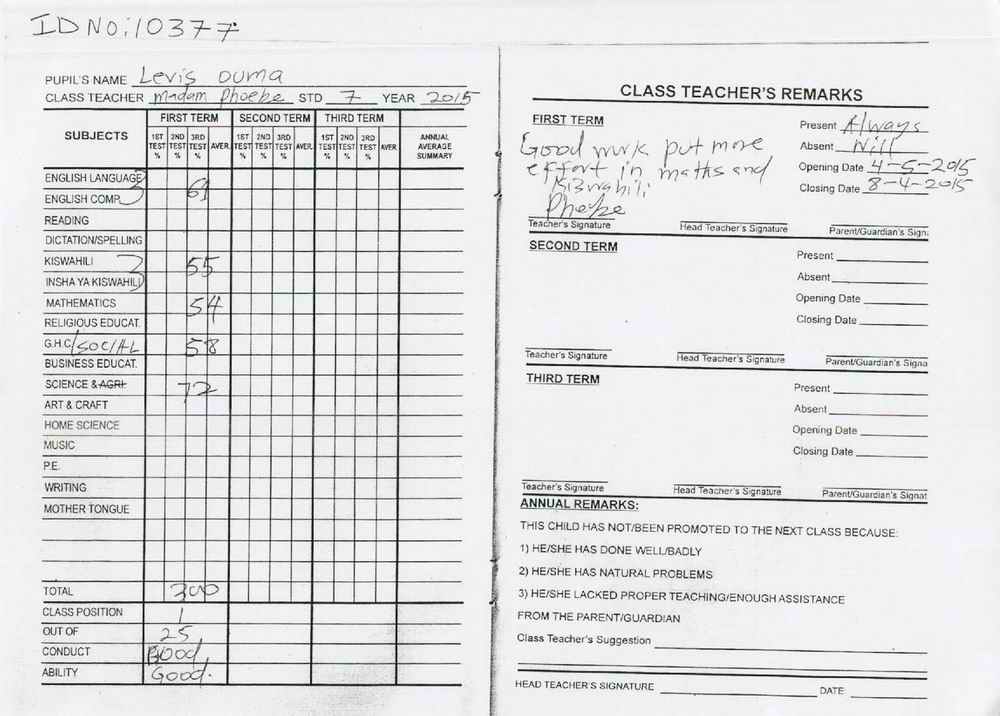 ID No: 10377
PUPIL'S NAME Levis Ouma
CLASS TEACHER madam Phoebe STD 7 YEAR 2015
SUBJECTS FIRST TERM SECOND TERM THIRD TERM
1ST TEST % 2ND TEST % 3RD TEST % AVER. 1ST TEST % 2ND TEST % 3RD TEST % AVER. 1ST TEST % 2ND TEST % 3RD TEST % AVER. ANNUAL AVERAGE SUMMARY
ENGLISH LANGUAGE
ENGLISH COMP. 61
READING
DICTATION/SPELLING
KISWAHILI 55
INSHA YA KISWAHILI
MATHEMATICS 54
RELIGIOUS EDUCAT.
G.H.C/SOCIAL 58
BUSINESS EDUCAT.
SCIENCE & AGRI 72
ART & CRAFT
HOME SCIENCE
MUSIC
P.E.
WRITING
MOTHER TONGUE
TOTAL 300
CLASS POSITION 1
OUT OF 25
CONDUCT Good
ABILITY Good.
CLASS TEACHER'S REMARKS
FIRST TERM
Present Always
Absent Nill
Opening Date 4-5-2015
Closing Date 8-4-2015
Good work put more
effort in maths and
Phoebe
Teacher's Signature Head Teacher's Signature Parent/Guardian's Sign:
SECOND TERM
Present
Absent
Opening Date
Closing Date
Teacher's Signature Head Teacher's Signature Parent/Guardian's Signa
THIRD TERM
Present
Absent
Opening Date
Closing Date
Teacher's Signature Head Teacher's Signature Parent/Guardian's Signat
ANNUAL REMARKS:
THIS CHILD HAS NOT/BEEN PROMOTED TO THE NEXT CLASS BECAUSE:
1) HE/SHE HAS DONE WELL/BADLY
2) HE/SHE HAS NATURAL PROBLEMS
3) HE/SHE LACKED PROPER TEACHING/ENOUGH ASSISTANCE
FROM THE PARENT/GUARDIAN
Class Teacher's Suggestion
HEAD TEACHER'S SIGNATURE DATE